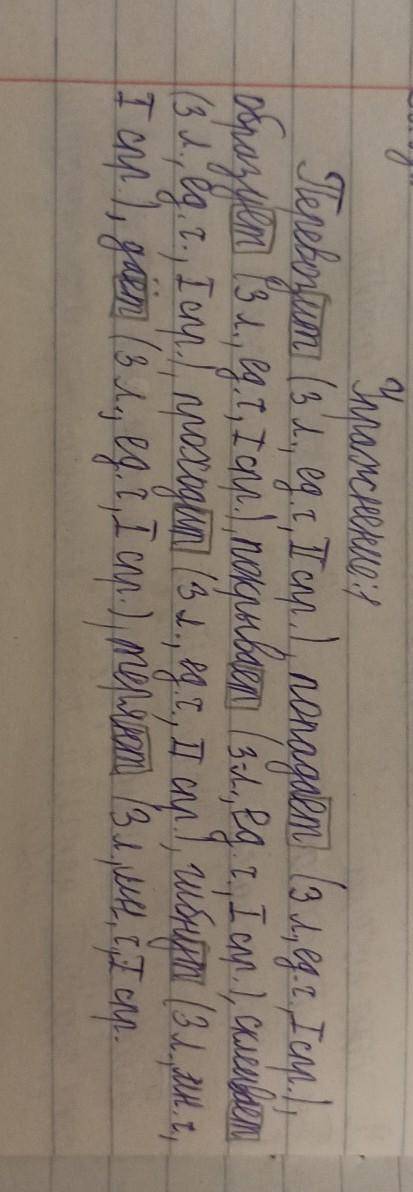 Упражнение:1
Перевозит (3 л., ед.ч, II спр.), попадает (3 л., ед.ч., I спр.),
образует (3 л., ед.ч, I спр.), покрывает (3-л., ед.ч., I спр.), склеивает
(3 л., ед.ч., I спр.), проходит (3 л., ед.ч., II спр.), гибнут (3 л., мн.ч.,
I спр.), даёт (3 л., ед.ч, I спр.), теряют (3 л., мн.ч., I спр.